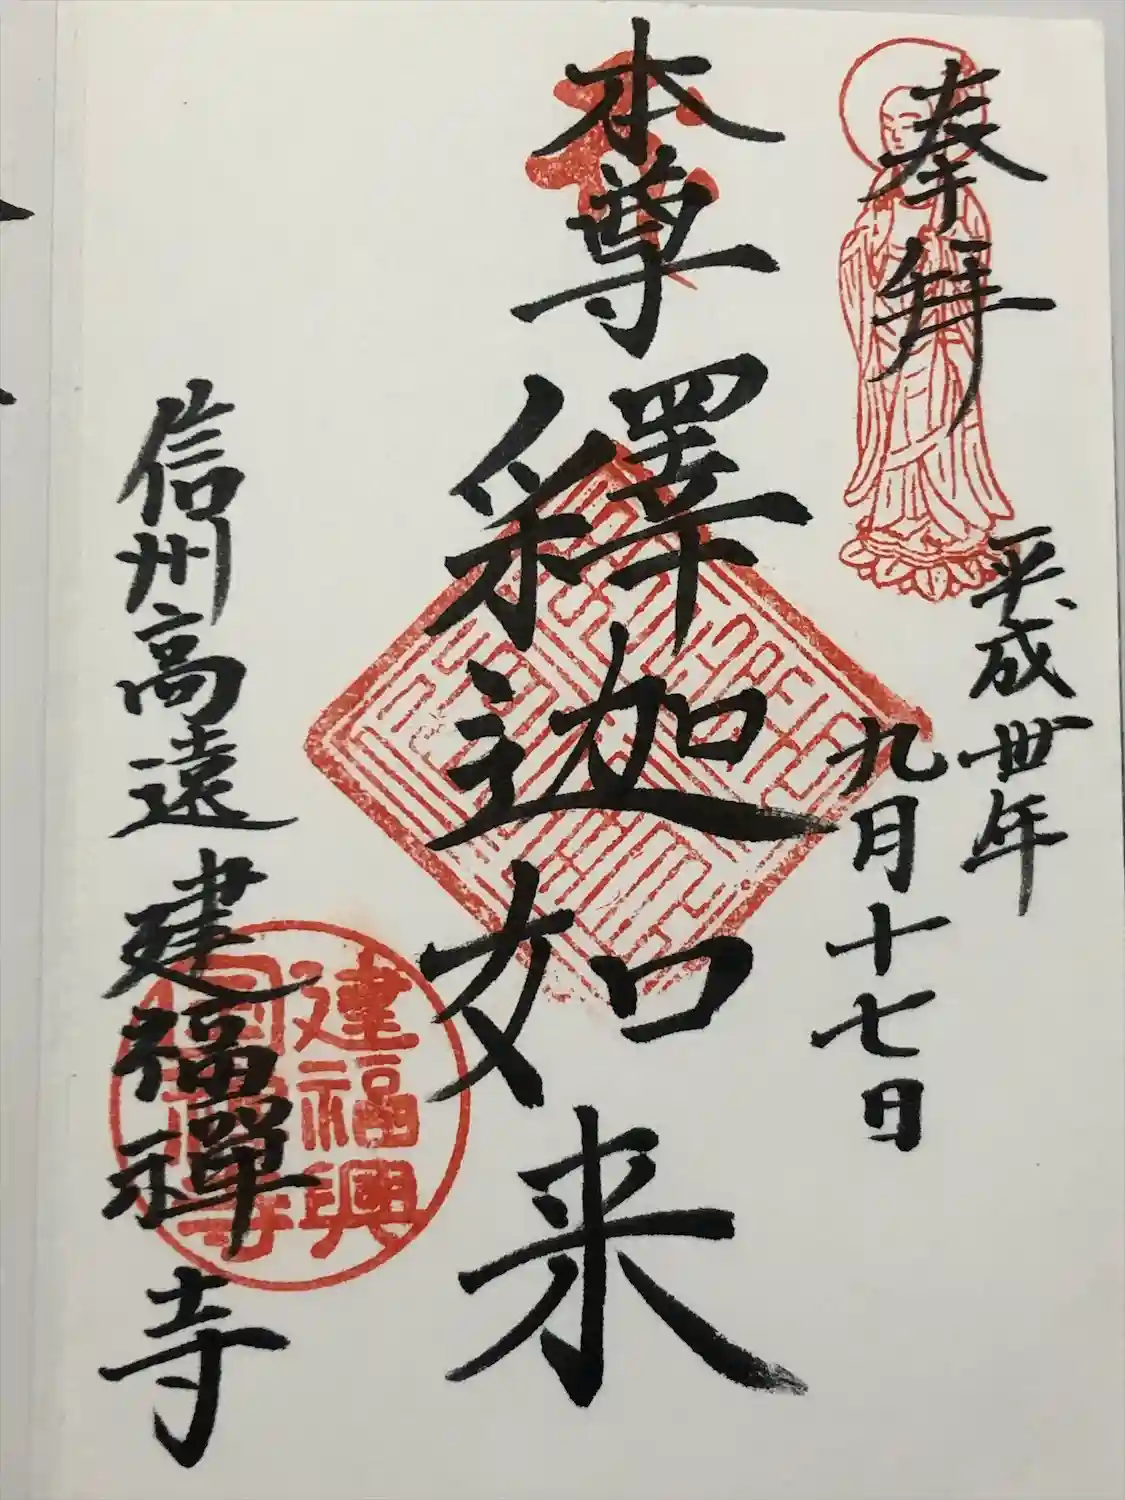 奉拜
平成卅年
九月十七日
本尊釋迦如来
信州高遠建福禪寺
建福興